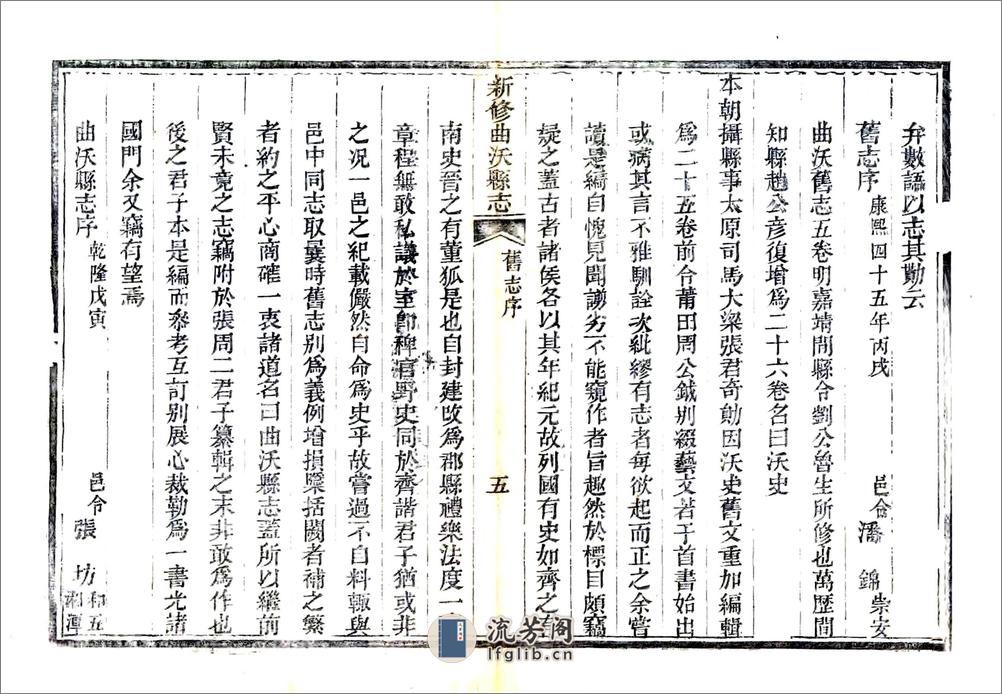 弁數語以志其勛云
舊志序 康熙四十五年丙戌 邑令潘錦崇安
曲沃舊志五卷明嘉靖間縣令劉公魯生所修也萬歷間
知縣趙公彥復增爲二十六卷名曰沃史
本朝攝縣事太原司馬大梁張君奇勛因沃史舊文重加編輯
爲二十五卷前令莆田周公鉞別綴藝文若干首書始出
或病其言不雅馴詮次紕繆有志者每欲起而正之余嘗
讀是編自愧見聞謭劣不能窺作者旨趣然於標目頗竊
疑之蓋古者諸侯各以其年紀元故列國有史如齊之有
新修曲沃縣志 舊志序 五
南史晉之有董狐是也自封建改爲郡縣禮樂法度一
章程無敢私議於室卽稗官野史同於齊諧君子猶或非
之况一邑之紀載儼然自命爲史乎故嘗過不自料輒與
邑中同志取曩時舊志別爲義例增損檃括闕者補之繁
者約之平心商確一衷諸道名曰曲沃縣志蓋所以繼前
賢未竟之志竊附於張周二君子纂輯之末非敢爲作也
後之君子本是編而叅考互訂别展心裁勒爲一書光諸
國門余又竊有望焉
曲沃縣志序 乾隆戊寅 邑令張坊和五湘潭
流芳阁
lfglib.cn